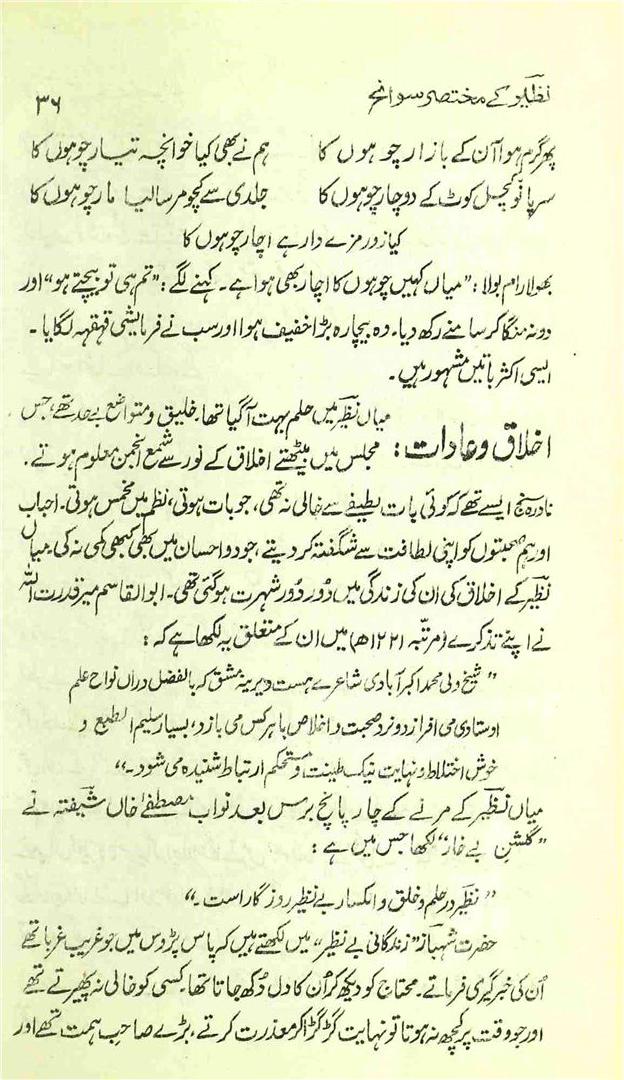 نظیر کے مختصر سوانح ۳۶
پھر گرم ہوا آن کے بازار چوہوں کا ہم نے بھی کیا خوانچہ تیار چوہوں کا
سر پا نو کچل کوٹ کے دو چار چوہوں کا جلدی سے کچومر سا لیا مار چوہوں کا
کیا زور مزے دار ہے اچار چوہوں کا
بھولا رام بولا: ”میاں کہیں چوہوں کا اچار بھی ہوا ہے۔ کہنے لگے: ”تم ہی تو بیچتے ہو“ اور
دونہ منگا کر سامنے رکھ دیا۔ وہ بیچارہ بڑا خفیف ہوا اور سب نے فرمایشی قہقہہ لگایا۔
ایسی اکثر باتیں مشہور ہیں۔
اخلاق و عادات: میاں نظیر میں حلم بہت آگیا تھا۔ خلیق و متواضع بے حد تھے، جس
مجلس میں بیٹھتے اخلاق کے نور سے شمع انجمن معلوم ہوتے۔
نادرہ سنج ایسے تھے کہ کوئی بات لطیفے سے خالی نہ تھی، جو بات ہوتی، نظم میں مخمس ہوتی۔ احباب
اور ہم صحبتوں کو اپنی لطافت سے شگفتہ کر دیتے، جود و احسان میں بھی کبھی کمی نہ کی۔ میاں
نظیر کے اخلاق کی ان کی زندگی میں دُور دُور شہرت ہو گئی تھی۔ ابوالقاسم میر قدرت اللہ
نے اپنے تذکرے (مرتبہ ۱۲۲۱ھ) میں ان کے متعلق یہ لکھا ہے کہ:
”شیخ ولی محمد اکبر آبادی شاعرے ہست دیرینہ مشق کہ بالفضل دراں نواح علم
اوستادی می افرازد و نرد صحبت و اخلاص با ہر کس می بازد، بسیار سلیم الطبع و
خوش اختلاط و نہایت نیک طینت و مستحکم ارتباط شنیدہ می شود۔“
میاں نظیر کے مرنے کے چار پانچ برس بعد نواب مصطفےٰ خاں شیفتہ نے
”گلشن بے خار“ لکھا جس میں ہے:
”نظیر در حلم و خلق و انکسار بے نظیر روزگار است۔“
حضرت شہباز ”زندگانی بے نظیر“ میں لکھتے ہیں کہ پاس پڑوس میں جو غریب غربا تھے
اُن کی خبر گیری فرماتے۔ محتاج کو دیکھ کر اُن کا دل دُکھ جاتا تھا۔ کسی کو خالی نہ پھیرتے تھے
اور جو وقت پر کچھ نہ ہوتا تو نہایت گڑ گڑا کر معذرت کرتے، بڑے صاحب ہمت تھے اور